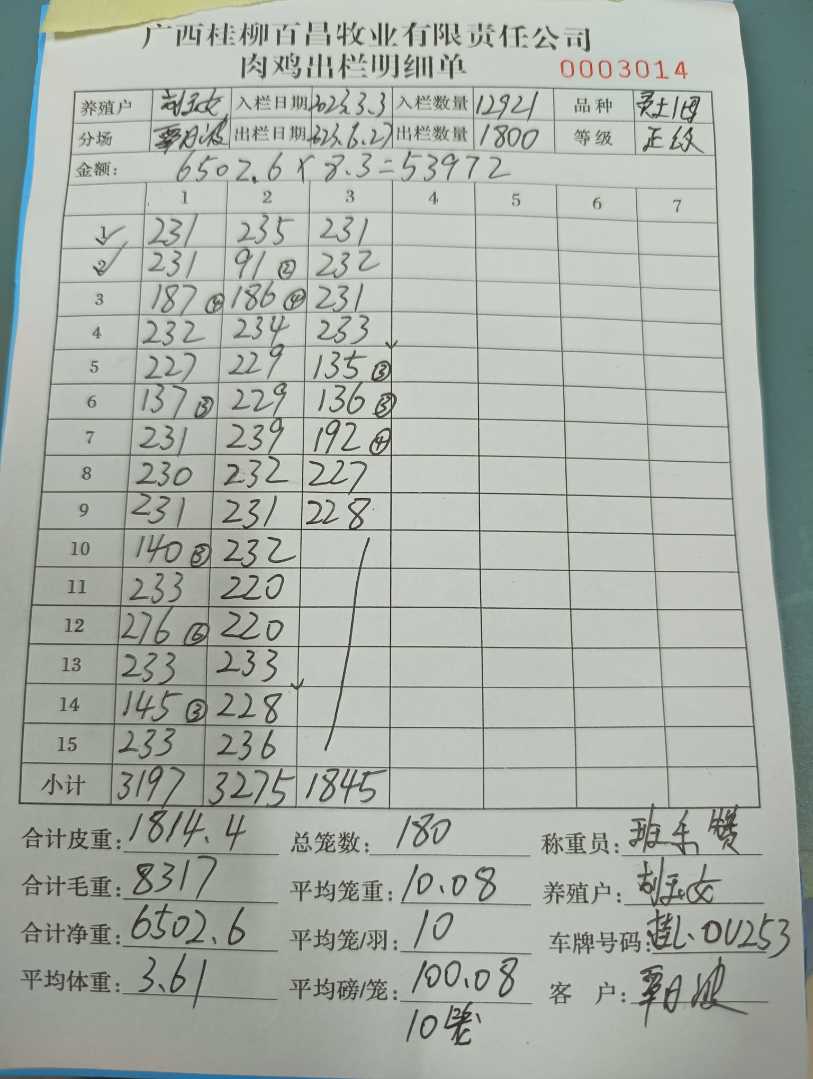 广西桂柳百昌牧业有限责任公司
肉鸡出栏明细单 0003014
养殖户 刘玉女 入栏日期 2023.3.3 入栏数量 12921 品种
分场 覃月波 出栏日期 2023.6.27 出栏数量 1800 等级 正级
金额: 6502.6 × 8.3=53972
1 2 3 4 5 6 7
1 231 235 231
2 231 91 ② 232
3 187 ④ 186 ④ 231
4 232 234 233
5 227 229 135 ③
6 137 ③ 229 136 ③
7 231 239 192 ④
8 230 232 227
9 231 231 228
10 140 ③ 232
11 233 220
12 276 ⑥ 220
13 233 233
14 145 ③ 228
15 233 236
小计 3197 3275 1845
合计皮重: 1814.4 总笼数: 180 称重员:
合计毛重: 8317 平均笼重: 10.08 养殖户: 刘玉女
合计净重: 6502.6 平均笼/羽: 10 车牌号码: 桂L·DU253
平均体重: 3.61 平均磅/笼: 100.08 客 户: 覃月波
10